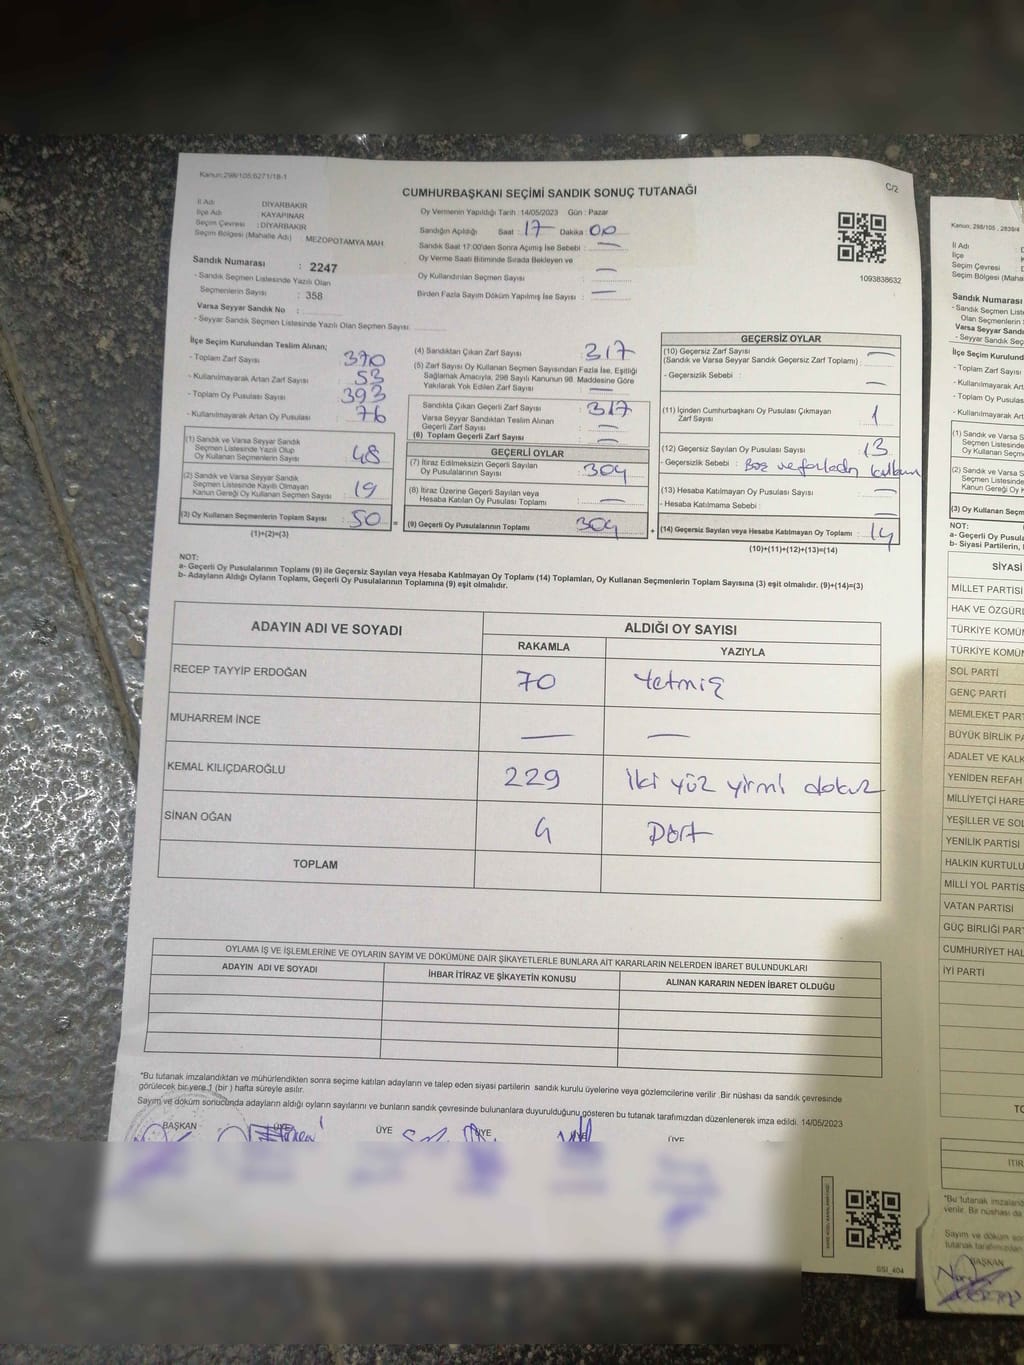 Kanun:298/105;6271/18-1
C/2
CUMHURBAŞKANI SEÇİMİ SANDIK SONUÇ TUTANAĞI
İl Adı DİYARBAKIR
İlçe Adı KAYAPINAR
Seçim Çevresi : DİYARBAKIR
Seçim Bölgesi (Mahalle Adı) MEZOPOTAMYA MAH.
Sandık Numarası : 2247
- Sandık Seçmen Listesinde Yazılı Olan
Seçmenlerin Sayısı : 358
Varsa Seyyar Sandık No :
- Seyyar Sandık Seçmen Listesinde Yazılı Olan Seçmen Sayısı:
Oy Vermenin Yapıldığı Tarih : 14/05/2023 Gün : Pazar
Sandığın Açıldığı Saat : 17 Dakika : 00
Sandık Saat 17:00'den Sonra Açımış İse Sebebi : —
Oy Verme Saati Bitiminde Sırada Bekleyen ve
Oy Kullandırılan Seçmen Sayısı : —
Birden Fazla Sayım Döküm Yapılmış İse Sayısı : —
1093838632
İlçe Seçim Kurulundan Teslim Alınan;
- Toplam Zarf Sayısı 370
- Kullanılmayarak Artan Zarf Sayısı : 53
- Toplam Oy Pusulası Sayısı 393
- Kullanılmayarak Artan Oy Pusulası 76
(1) Sandık ve Varsa Seyyar Sandık
Seçmen Listesinde Yazılı Olup
Oy Kullanan Seçmenlerin Sayısı : 48
(2) Sandık ve Varsa Seyyar Sandık
Seçmen Listesinde Kayıtlı Olmayan
Kanun Gereği Oy Kullanan Seçmen Sayısı : 19
(3) Oy Kullanan Seçmenlerin Toplam Sayısı : 50 =
(1)+(2)=(3)
(4) Sandıktan Çıkan Zarf Sayısı : 317
(5) Zarf Sayısı Oy Kullanan Seçmen Sayısından Fazla İse, Eşitliği
Sağlamak Amacıyla, 298 Sayılı Kanunun 98. Maddesine Göre
Yakılarak Yok Edilen Zarf Sayısı : —
Sandıkta Çıkan Geçerli Zarf Sayısı : 317
Varsa Seyyar Sandıktan Teslim Alınan
Geçerli Zarf Sayısı : —
(6) Toplam Geçerli Zarf Sayısı : —
GEÇERLİ OYLAR
(7) İtiraz Edilmeksizin Geçerli Sayılan
Oy Pusulalarının Sayısı : 304
(8) İtiraz Üzerine Geçerli Sayılan veya
Hesaba Katılan Oy Pusulası Toplamı : —
(9) Geçerli Oy Pusulalarının Toplamı : 304 +
GEÇERSİZ OYLAR
(10) Geçersiz Zarf Sayısı
(Sandık ve Varsa Seyyar Sandık Geçersiz Zarf Toplamı) : —
- Geçersizlik Sebebi : —
(11) İçinden Cumhurbaşkanı Oy Pusulası Çıkmayan
Zarf Sayısı : 1
(12) Geçersiz Sayılan Oy Pusulası Sayısı : 13
- Geçersizlik Sebebi : Boş ve fazladan
(13) Hesaba Katılmayan Oy Pusulası Sayısı : —
- Hesaba Katılmama Sebebi : —
(14) Geçersiz Sayılan veya Hesaba Katılmayan Oy Toplamı : 14
(10)+(11)+(12)+(13)=(14)
NOT:
a- Geçerli Oy Pusulalarının Toplamı (9) ile Geçersiz Sayılan veya Hesaba Katılmayan Oy Toplamı (14) Toplamları, Oy Kullanan Seçmenlerin Toplam Sayısına (3) eşit olmalıdır. (9)+(14)=(3)
b- Adayların Aldığı Oyların Toplamı, Geçerli Oy Pusulalarının Toplamına (9) eşit olmalıdır.
ADAYIN ADI VE SOYADI
ALDIĞI OY SAYISI
RAKAMLA YAZIYLA
RECEP TAYYİP ERDOĞAN 70 Yetmiş
MUHARREM İNCE — —
KEMAL KILIÇDAROĞLU 229 iki yüz yirmi dokuz
SİNAN OĞAN 4 Dört
TOPLAM
OYLAMA İŞ VE İŞLEMLERİNE VE OYLARIN SAYIM VE DÖKÜMÜNE DAİR ŞİKAYETLERLE BUNLARA AİT KARARLARIN NELERDEN İBARET BULUNDUKLARI
ADAYIN ADI VE SOYADI İHBAR İTİRAZ VE ŞİKAYETİN KONUSU ALINAN KARARIN NEDEN İBARET OLDUĞU
*Bu tutanak imzalandıktan ve mühürlendikten sonra seçime katılan adayların ve talep eden siyasi partilerin sandık kurulu üyelerine veya gözlemcilerine verilir .Bir nüshası da sandık çevresinde
görülecek bir yere 1 (bir ) hafta süreyle asılır.
Sayım ve döküm sonucunda adayların aldığı oyların sayılarını ve bunların sandık çevresinde bulunanlara duyurulduğunu gösteren bu tutanak tarafımızdan düzenlenerek imza edildi. 14/05/2023
BAŞKAN ÜYE ÜYE ÜYE ÜYE
SSI_404
Kanun; 298/105 , 2839/4
İl Adı
İlçe
Seçim Çevresi
Seçim Bölgesi (Maha
Sandık Numarası
- Sandık Seçmen Liste
Olan Seçmenlerin
Varsa Seyyar Sandık
- Seyyar Sandık Seç
İlçe Seçim Kurulund
- Toplam Zarf Sayısı
- Kullanılmayarak Arta
- Toplam Oy Pusulası
- Kullanılmayarak
(1) Sandık ve Varsa
Seçmen Listesinde
Oy Kullanan Seçm
(2) Sandık ve Varsa
Seçmen Listesinde
Kanun Gereği Oy K
(3) Oy Kullanan Seçm
NOT:
a- Geçerli Oy Pusula
b- Siyasi Partilerin,
SİYASİ
MİLLET PARTİSİ
HAK VE ÖZGÜRL
TÜRKİYE KOMÜN
TÜRKİYE KOMÜN
SOL PARTİ
GENÇ PARTİ
MEMLEKET PART
BÜYÜK BİRLİK PA
ADALET VE KALK
YENİDEN REFAH
MİLLİYETÇİ HARE
YEŞİLLER VE SOL
YENİLİK PARTİSİ
HALKIN KURTULU
MİLLİ YOL PARTİS
VATAN PARTİSİ
GÜÇ BİRLİĞİ PART
CUMHURİYET HAL
İYİ PARTİ
TO
İTİR
*Bu tutanak imzaland
verilir. Bir nüshası da
Sayım ve döküm son
tutanak tarafımızdan
BAŞKAN